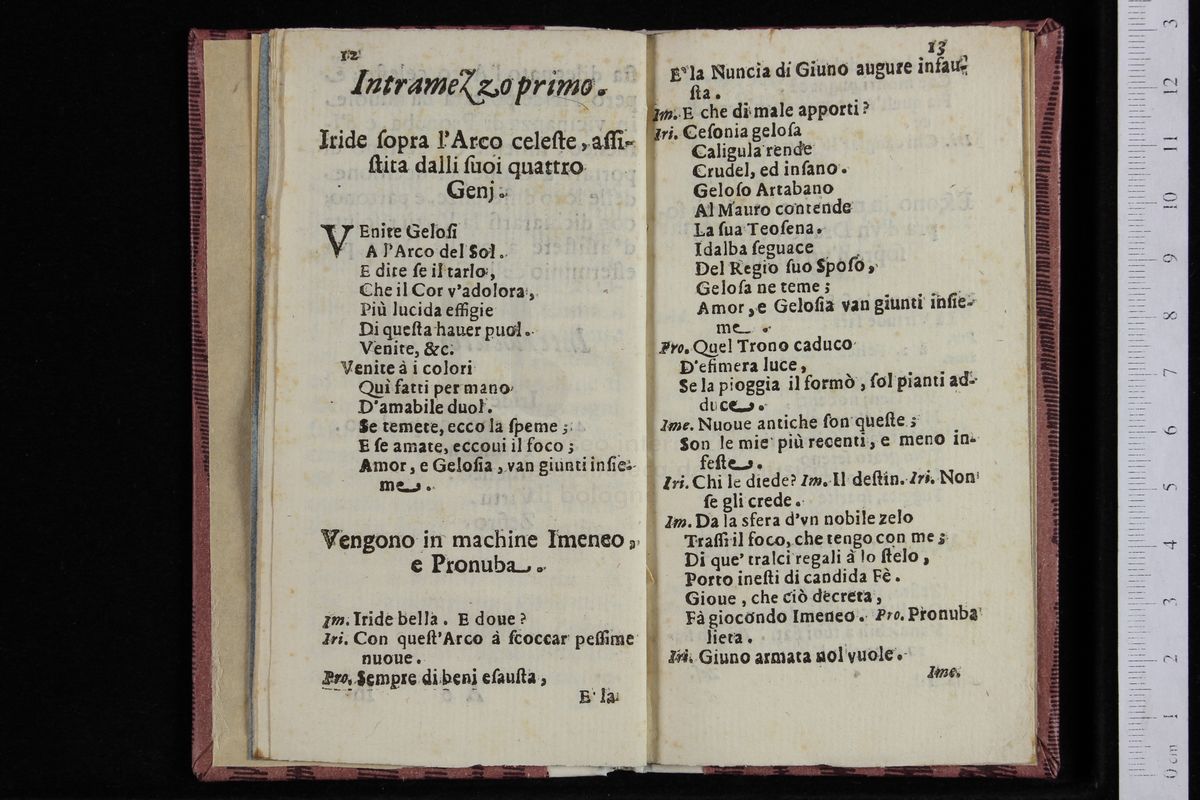 12
Intramezzo primo.
Iride ſopra l'Arco celeſte, aſſi-
ſtita dalli ſuoi quattro
Genj.
VEnite Geloſi
A l'Arco del Sol.
E dite ſe il tarlo,
Che il Cor v'adolora,
Più lucida effigie
Di queſta hauer puol.
Venite, &c.
Venite à i colori
Quì fatti per mano
D'amabile duol.
Se temete, ecco la ſpeme;
E ſe amate, eccoui il foco;
Amor, e Geloſia, van giunti inſie-
me.
Vengono in machine Imeneo,
e Pronuba.
Im. Iride bella. E doue?
Iri. Con queſt'Arco à ſcoccar peſſime
nuoue.
Pro. Sempre di beni eſauſta,
E' la
13
E' la Nuncia di Giuno augure infau-
ſta.
Im. E che di male apporti?
Iri. Ceſonia geloſa
Caligula rende
Crudel, ed inſano.
Geloſo Artabano
Al Mauro contende
La ſua Teoſena.
Idalba ſeguace
Del Regio ſuo Spoſo,
Geloſa ne teme;
Amor, e Geloſia van giunti inſie-
me.
Pro. Quel Trono caduco
D'efimera luce,
Se la pioggia il formò, ſol pianti ad-
duce.
Ime. Nuoue antiche ſon queſte;
Son le mie più recenti, e meno in-
feſte.
Iri. Chi le diede? Im. Il deſtin. Iri. Non
ſe gli crede.
Im. Da la sfera d'vn nobile zelo
Traſſi il foco, che tengo con me;
Di que' tralci regali à lo ſtelo,
Porto ineſti di candida Fè.
Gioue, che ciò decreta,
Fà giocondo Imeneo. Pro. Pronuba
lieta.
Iri. Giuno armata nol vuole.
Ime.
3
12
11
10
9
8
7
6
5
4
3
2
1
0 cm